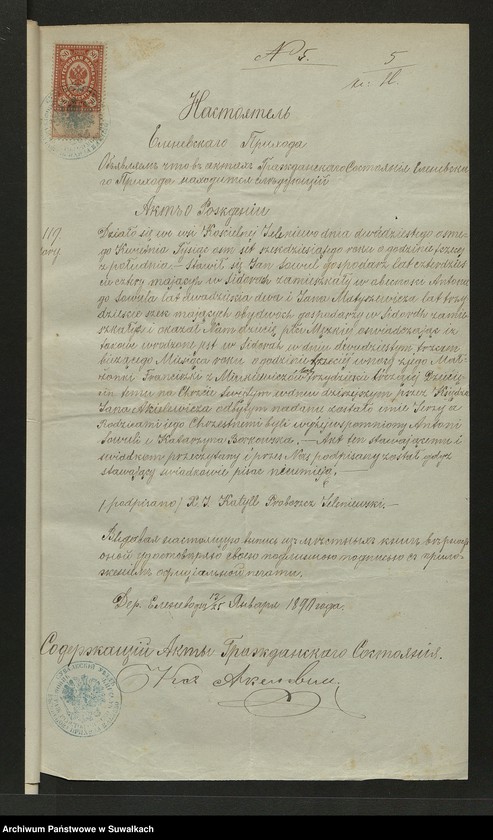 № 5.
5
Настоятель
Еленевскаго Прихода
Объявляетъ что въ актахъ Гражданскаго Состоянія Еленевска
го Прихода находится слѣдующій
Актъ Рожденія
119
Działo się we wsi Kościelnej Jeleniewo dnia dwudziestego ósme
go Kwietnia Tysiąc ośmset sześćdziesiątego roku o godzinie
z południa — Stawił się Jan Sowul gospodarz lat czterdzieś
ci cztery mający w Sidorach zamieszkały w obecności Antonie
go Sowula lat dwadzieścia dwa i Jana Matyszewicza lat trzy
dzieści sześć mających obydwóch gospodarzy w Sidorach zamie
szkałych i okazał Nam dziecię płci Męzkiej oświadczając iż
takowe urodzone jest w Sidorach w dniu dwudziestym trzecim
bieżącego Miesiąca roku o godzinie trzeciej w nocy z jego Mał
żonki Franciszki z Markiewiczów lat trzydzieści trzy mającej Dziecię
ciu temu na Chrzcie Świętym w dniu dzisiejszym przez Księdza
Jana Akielewicza odbytym nadane zostało imie Jerzy a
Rodzicami jego Chrzestnymi byli wyżej wspomniony Antoni
Sowul i Katarzyna Borkowska. — Akt ten stawającemu i
świadkom przeczytany i przez Nas podpisany został gdyż
stawający i świadkowie pisać nieumieją. —
/ podpisano / X. J. Katyll Proboszcz Jeleniewski. —
Выдавая настоящую выпись изъ мѣстныхъ книгъ вѣрность
оной удостовѣряю своею подлинною подписью съ прило-
женіемъ оффиціальной печати.
Дер. Еленево 13/25 Января 1890 года.
Содержащій Акты Гражданскаго Состоянія.
Archiwum Państwowe w Suwałkach